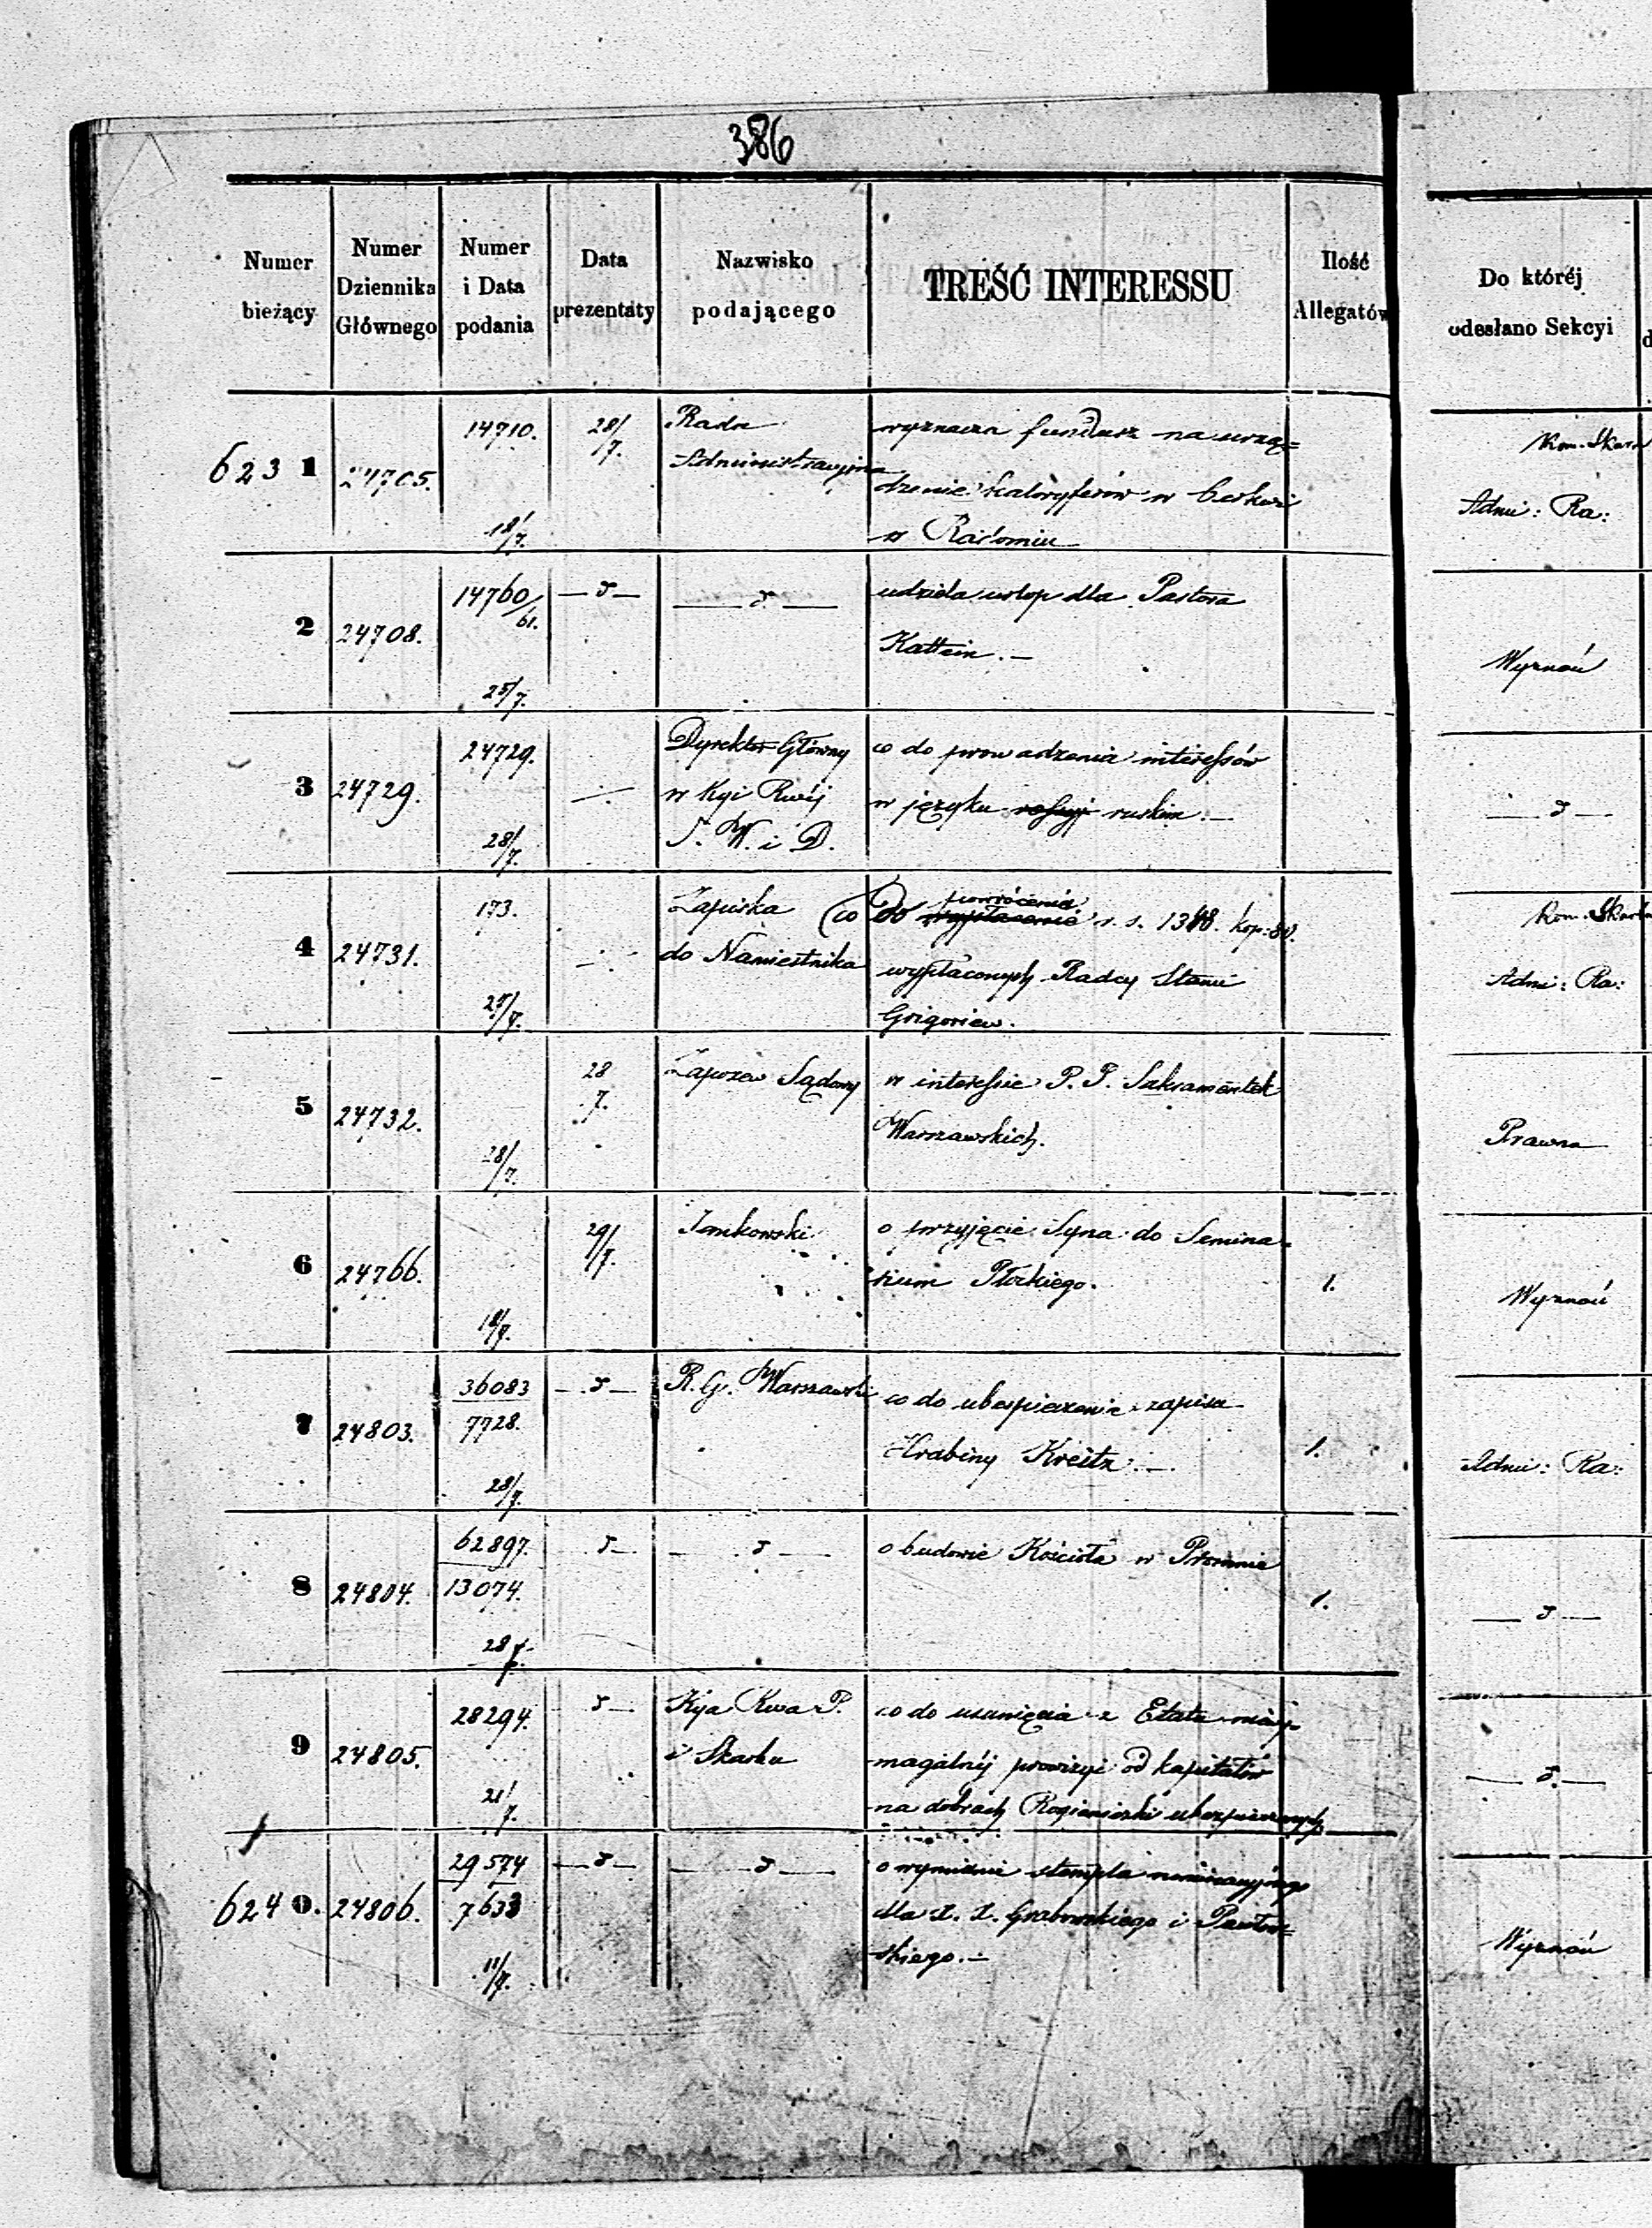 386
Numer bieżący
Numer Dziennika Głównego
Numer i Data podania
Data prezentaty
Nazwisko podającego
TREŚĆ INTERESSU
Ilość Allegatów
Do któréj odesłano Sekcyi
6231
24705.
14710.
18/7.
28/7.
Rada
Administracyjna
wyznacza fundusz na urzą=
dzenie kaloryferów w Cerkwi
w Radomiu
Kom. Skarb
Admi: Ra:
2
24708.
14760/61.
25/7.
— d —
— d —
udziela urlop dla Pastora
Kattein. —
Wyznań
3
24729.
24729.
28/7.
Dyrektor Główny
w Kyi Rwéj
S. W. i D.
co do prowadzenia interessów
w języku ruskim. —
— d —
4
24731.
173.
Zapiska
do Namiestnika
(co do powrócenia r. s. 1348. kop: 80.
wypłaconych Radcy Stanu
Grigoriew.
Kom. Skarb
Admi: Ra:
5
24732.
28/7.
28
7.
Zapozew Sądowy
w interessie P. P. Sakramentek
Warszawskich.
Prawna
6
24766.
18/7.
29/7.
Jankowski
o przyjęcie Syna do Semina=
rium Płockiego.
1.
Wyznań
7
24803.
36083
7728.
28/7.
— d —
R. G. Warszawski
co do ubespieczenie zapisu
Hrabiny Kreitz. —
1.
Admi: Ra:
8
24804.
62897.
13074.
28/7.
— d —
— d —
o budowie Kościoła w Promnie
1.
— d —
9
24805.
28294.
21/7.
— d —
Kya Rwa P.
i Skarbu
co do usunięcia z Etatu
prowizyi od kapitałów
na dobrach ubezpieczonych
— d. —
6240.
24806.
29574
7633
11/7.
— d —
— d —
o wymianie stempla
dla X. X. Grabowskiego i Pawłow=
skiego. —
Wyznań